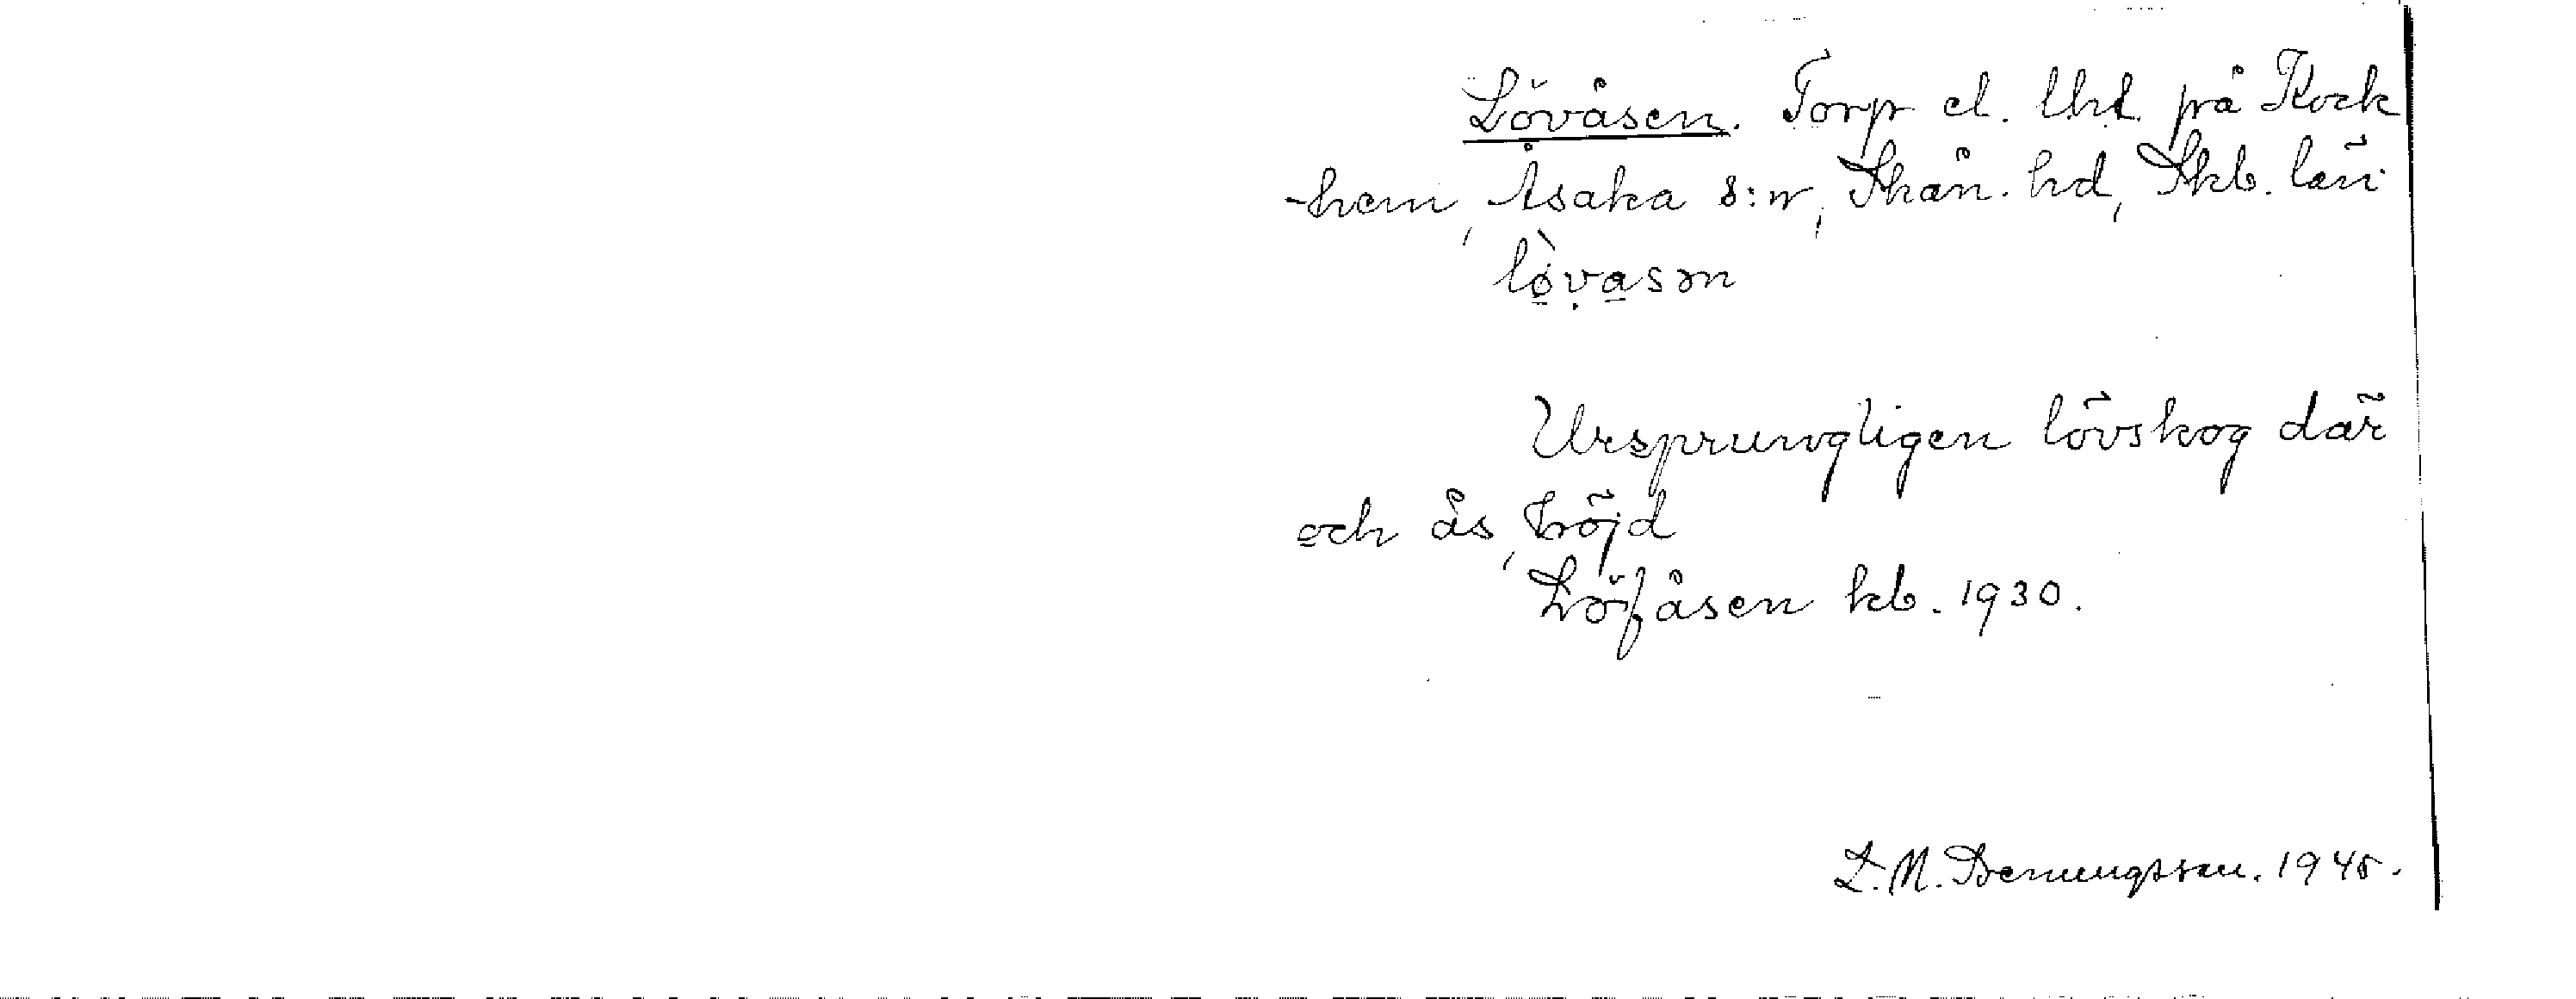 Lövåsen. Torp el. lht. på Kock
-hem, Åsaka s:n, Skån. hd, Skb. län
lø̀vasən
Ursprungligen lövskog där
och ås, höjd
Löfåsen kb. 1930.
L. M. 1945.